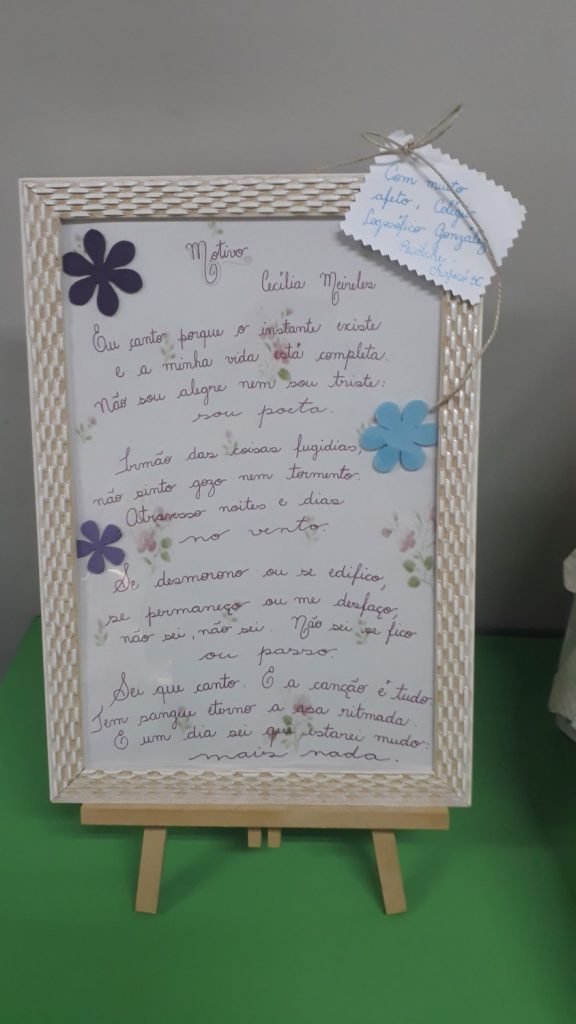 Com muito
afeto, Colégio
Logosófico González
Pecotche.
Chapecó SC
Motivo
Cecília Meireles
Eu canto porque o instante existe
e a minha vida está completa.
Não sou alegre nem sou triste:
sou poeta.
Irmão das coisas fugidias,
não sinto gozo nem tormento.
Atravesso noites e dias
no vento.
Se desmorono ou se edifico,
se permaneço ou me desfaço,
não sei, não sei. Não sei se fico
ou passo.
Sei que canto. E a canção é tudo.
Tem sangue eterno a asa ritmada.
E um dia sei que estarei mudo:
mais nada.